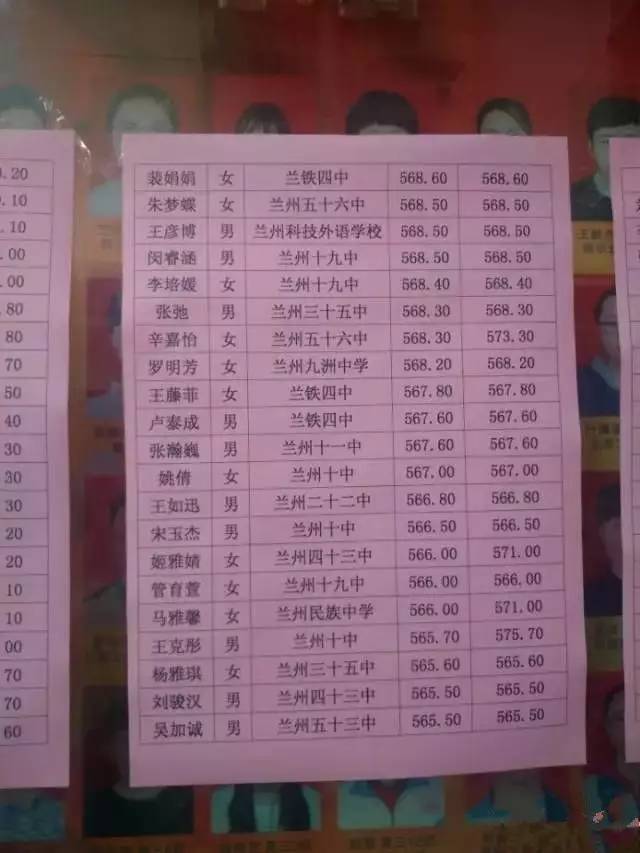 裴娟娟 女 兰铁四中 568.60 568.60
朱梦蝶 女 兰州五十六中 568.50 568.50
王彦博 男 兰州科技外语学校 568.50 568.50
闵睿涵 男 兰州十九中 568.50 568.50
李培媛 女 兰州十九中 568.40 568.40
张弛 男 兰州三十五中 568.30 568.30
辛嘉怡 女 兰州五十六中 568.30 573.30
罗明芳 女 兰州九洲中学 568.20 568.20
王藤菲 女 兰铁四中 567.80 567.80
卢泰成 男 兰铁四中 567.60 567.60
张瀚巍 男 兰州十一中 567.60 567.60
姚倩 女 兰州十中 567.00 567.00
王如迅 男 兰州二十二中 566.80 566.80
宋玉杰 男 兰州十中 566.50 566.50
姬雅婧 女 兰州四十三中 566.00 571.00
管育萱 女 兰州十九中 566.00 566.00
马雅馨 女 兰州民族中学 566.00 571.00
王克彤 男 兰州十中 565.70 575.70
杨雅琪 女 兰州三十五中 565.60 565.60
刘骏汉 男 兰州四十三中 565.50 565.50
吴加诚 男 兰州五十三中 565.50 565.50